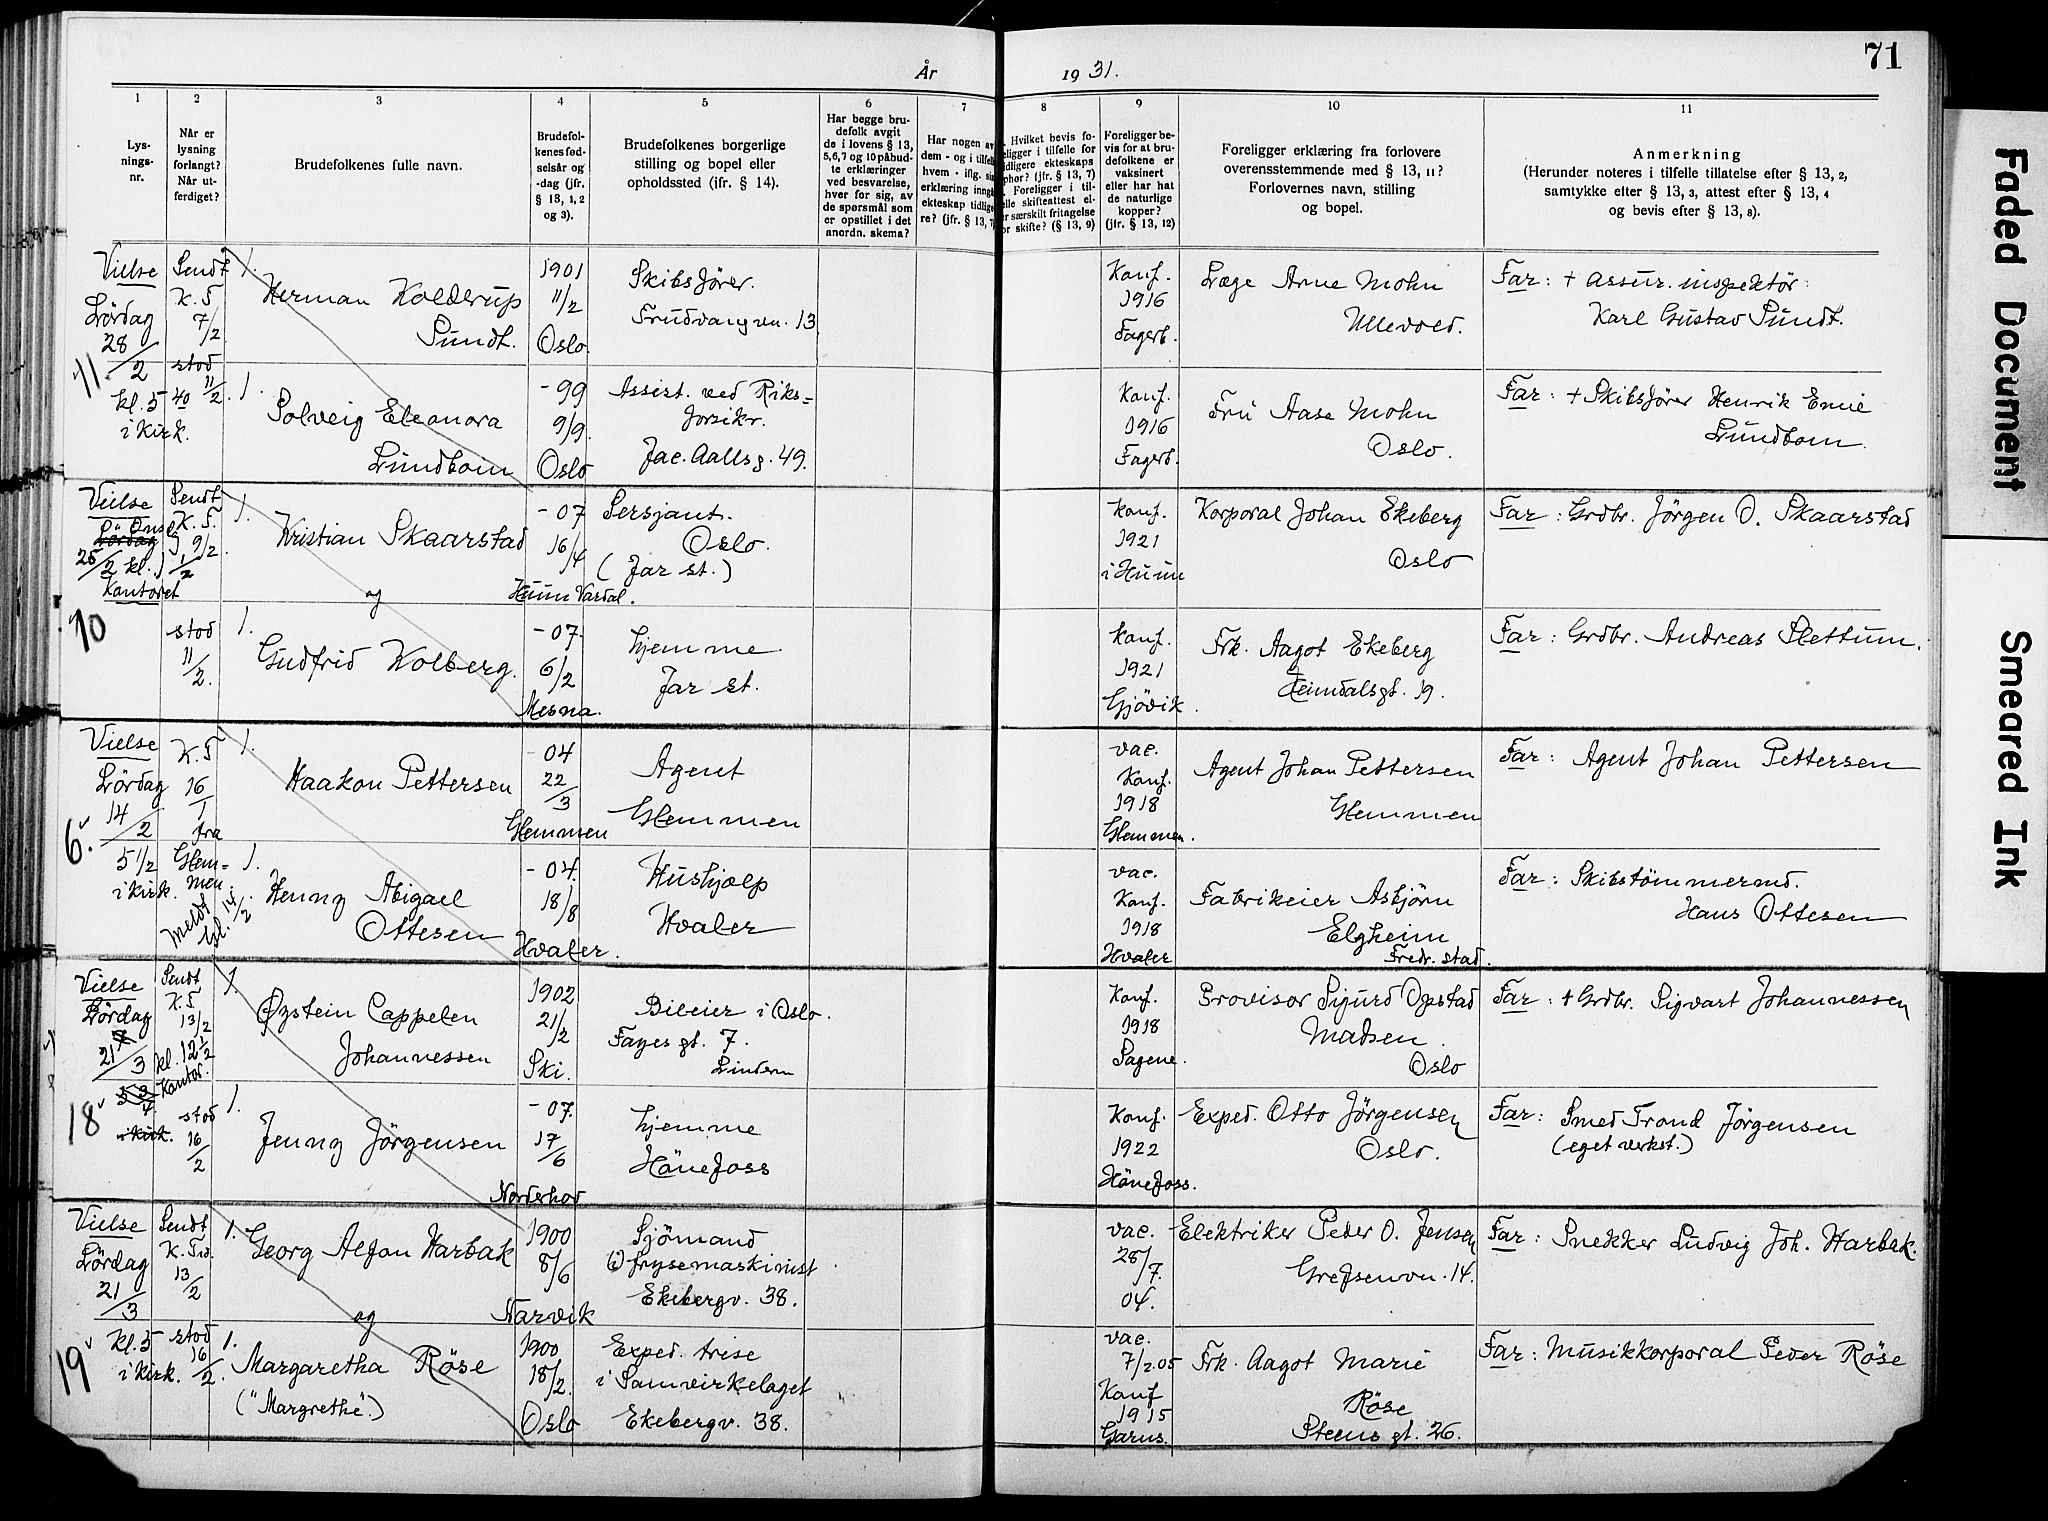 71
År 1931.
1
Lys-
nings-
nr.
2
Når er
lysning
forlangt?
Når ut-
ferdiget?
3
Brudefolkenes fulle navn.
4
Brudefol-
kenes fød-
selsår og
-dag (jfr.
§ 13, 1, 2
og 3).
5
Brudefolkenes borgerlige
stilling og bopel eller
opholdssted (ifr. § 14).
6
Har begge bru-
defolk avgit
de i lovens § 13,
5,6,7 og 10 påbud-
te erklæringer
ved besvarelse,
hver for sig, av
de spørsmål som
er opstillet i det
anordn. skema?
7
Har nogen av
dem - og i tilfelle
hvem - iflg. sin
erklæring inngå
ekteskap tidlige
re? (jfr. § 13, 7)
8
Hvilket bevis fo-
eligger i tilfelle for
idligere ekteskaps
phør? (jfr. § 13, 7)
Foreligger i til-
elle skifteattest el-
er særskilt fritagelse
or skifte? (§ 13, 9)
9
Foreligger be-
vis for at bru-
defolkene er
vaksinert
eller har hat
de naturlige
kopper?
(jfr. § 13, 12)
10
Foreligger erklæring fra forlovere
overensstemmende med § 13, 11?
Forlovernes navn, stilling
og bopel.
11
Anmerkning
(Herunder noteres i tilfelle tillatelse efter § 13, 2,
samtykke efter § 13, 3, attest efter § 13, 4
og bevis efter § 13, 8).
11.
Vielse
Lördag
28/2
kl. 5
i Kirk.
Sendt
K. T
7/2
stod
40 11/2
1.
Herman Kolderup
Sundt.
1901
11/2
Oslo.
Skibsförer.
Frudvangvn. 13
Konf.
1916
Fagerb.
Læge Arne Mohn
Ullevold.
Far: + Assur. inspektör:
Karl Gustav Sundt.
1.
Solveig Eleonora
Lundbom
- 99
9/9.
Oslo
Assist. ved Riks=
forsikr.
Jac. Aallsg. 49.
Konf.
1916
Fagerb.
Fru Aase Mohn
Oslo.
Far: + Skibsförer Henrik Emil
Lundbom.
10
Vielse
Onsd
Lördag
25/2 kl. 1 1/2
Kontoret
Sendt
K. T.
9/2.
1.
Kristian Skaarstad
og
- 07
16/4
Hunn Vardal.
Sersjant.
Oslo.
(Jar st.)
Konf.
1921
i Hunn
Korporal Johan Ekeberg
Oslo
Far: Grdbr. Jörgen O. Skaarstad
stod
11/2.
1.
Gudfrid Kolberg.
- 07.
6/2
Mesna.
hjemme
Jar st.
Konf.
1921
Gjövik.
Frk. Aagot Ekeberg
Heimdalsgt. 19.
Far: Grdbr. Andreas Slettum.
6.
Vielse
Lördag
14/2
5 1/2
i Kirk.
K. T
16/1
fra
Glem=
men
meldt
Gl. 14/2
1.
Haakon Pettersen
- 04
22/3
Glemmen
Agent
Glemmen
vac.
Konf.
1918
Glemmen.
Agent Johan Pettersen
Glemmen
Far: Agent Johan Pettersen
1.
Henny Abigael
Ottesen
- 04.
18/8
Hvaler.
Hushjælp
Hvaler
vac.
Konf.
1918
Hvaler
Fabrikeier Asbjörn
Elgheim
Fredr. stad.
Far: Skibstömmermd.
Hans Ottesen
18
Vielse
Lördag
21/3
i Kirk.
Sendt
K. T
13/2
kl. 12 1/2
Kontor.
1.
Øystein Cappelen
Johannessen
1902
21/2
Ski.
Bileier i Oslo.
Fayesgt. 7.
Lindern
Konf.
1918
Sagene.
Provisor Sigurd Opstad
Madsen.
Oslo
Far: + Grdbr. Sigvart Johannessen
stod
16/2
1.
Jenny Jörgensen
- 07.
17/6
Norderhov
hjemme
Hönefoss
Konf.
1922
Hönefoss.
Exped. Otto Jörgensen
Oslo.
Far: Smed Trond Jörgensen
(eget verkst.)
19
Vielse
Lördag
21/3
Kl. 5
i Kirk.
Sendt
K. Tid.
13/2
1.
Georg Alfon Harbak
og
1900
8/6
Narvik
Sjömand
(i) frysemaskinist
Ekebergv. 38.
vac.
28/7.
04.
Elektriker Peder O. Jensen
Grefsenvn. 14.
Far: Snekker Ludvig Joh. Harbak.
stod
16/2.
1.
Margaretha Röse
("Margrethe".)
1900
18/2.
Oslo
Exped. trise
i Samvirkelaget
Ekebergv. 38.
vac.
7/2.05
Konf
1915
Garns.
Frk. Aagot Marie
Röse
Steensgt. 26.
Far: Musikkorporal Peder Röse
Faded Document
Smeared Ink